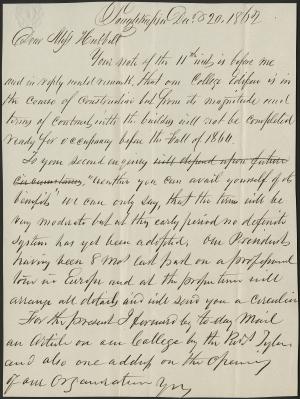 Poughkeepsie Dec. 20. 1862
Dear Miss Hurlbutt
Your note of the 11th inst, is before me
and in reply would remark, that our College Edifice is in
the course of construction but from its magnitude and
terms of contract with the builder will not be completed
ready for occupancy before the Fall of 1864.
To your second enquiry will depend upon future
circumstances, "whether you can avail yourself of its
benefits" We can only say, that the terms will be
very moderate but at this early period no definite
System has yet been adopted, our President
having been 8 Mos last past on a professional
tour in Europe and at the proper time will
arrange all details and will send you a Circular
For the present I forward by to day Mail
an Article on our College by the Prest
and also one address on the Opening
of our Organization